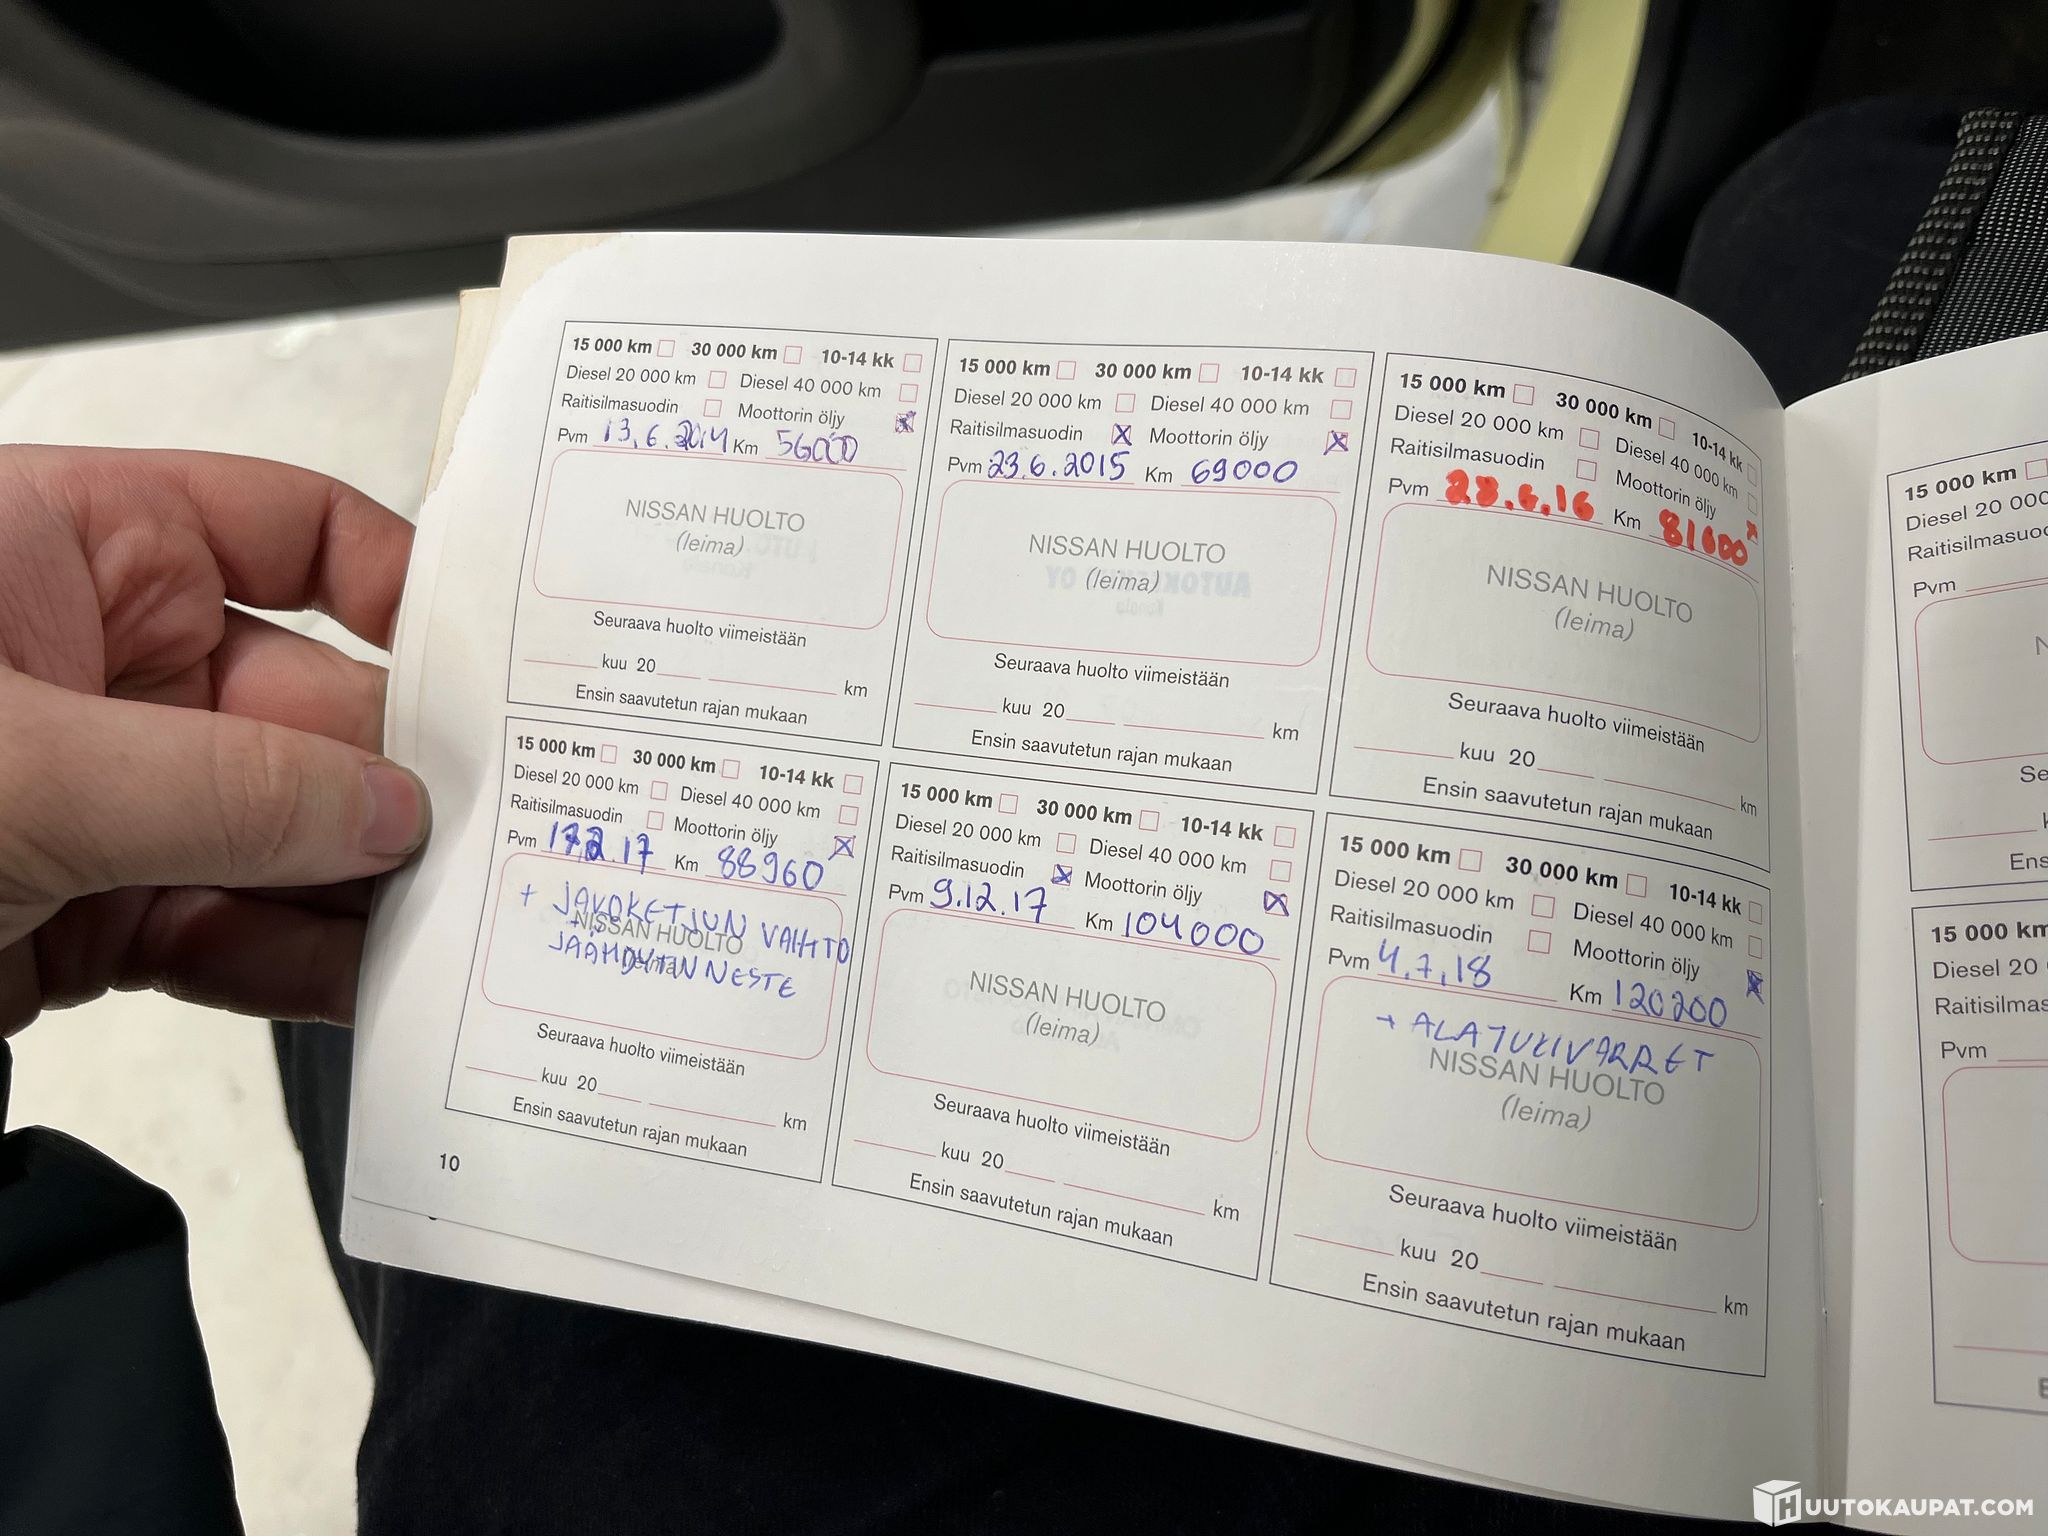 15 000 km 30 000 km 10-14 kk
Diesel 20 000 km Diesel 40 000 km
Raitisilmasuodin Moottorin öljy
Pvm 13.6.2014 Km 56000
NISSAN HUOLTO
(leima)
Seuraava huolto viimeistään
kuu 20 km
Ensin saavutetun rajan mukaan
15 000 km 30 000 km 10-14 kk
Diesel 20 000 km Diesel 40 000 km
Raitisilmasuodin Moottorin öljy
Pvm 23.6.2015 Km 69000
NISSAN HUOLTO
(leima)
Seuraava huolto viimeistään
kuu 20 km
Ensin saavutetun rajan mukaan
15 000 km 30 000 km 10-14 kk
Diesel 20 000 km Diesel 40 000 km
Raitisilmasuodin Moottorin öljy
Pvm Km
NISSAN HUOLTO
(leima)
Seuraava huolto viimeistään
kuu 20 km
Ensin saavutetun rajan mukaan
15 000 km 30 000 km 10-14 kk
Diesel 20 000 km Diesel 40 000 km
Raitisilmasuodin Moottorin öljy
Pvm Km 88960
+ JAKOKETJUN VAIHTO
NISSAN HUOLTO
JÄÄHDYTINNESTE
(leima)
Seuraava huolto viimeistään
kuu 20 km
Ensin saavutetun rajan mukaan
15 000 km 30 000 km 10-14 kk
Diesel 20 000 km Diesel 40 000 km
Raitisilmasuodin Moottorin öljy
Pvm 9.12.17 Km 104000
NISSAN HUOLTO
(leima)
Seuraava huolto viimeistään
kuu 20 km
Ensin saavutetun rajan mukaan
15 000 km 30 000 km 10-14 kk
Diesel 20 000 km Diesel 40 000 km
Raitisilmasuodin Moottorin öljy
Pvm 4.7.18 Km 120200
+ ALATUKIVARRET
NISSAN HUOLTO
(leima)
Seuraava huolto viimeistään
kuu 20 km
Ensin saavutetun rajan mukaan
10
15 000 km
Diesel 20 000
Pvm
15 000 km
Diesel 20
Pvm
HUUTOKAUPAT.COM